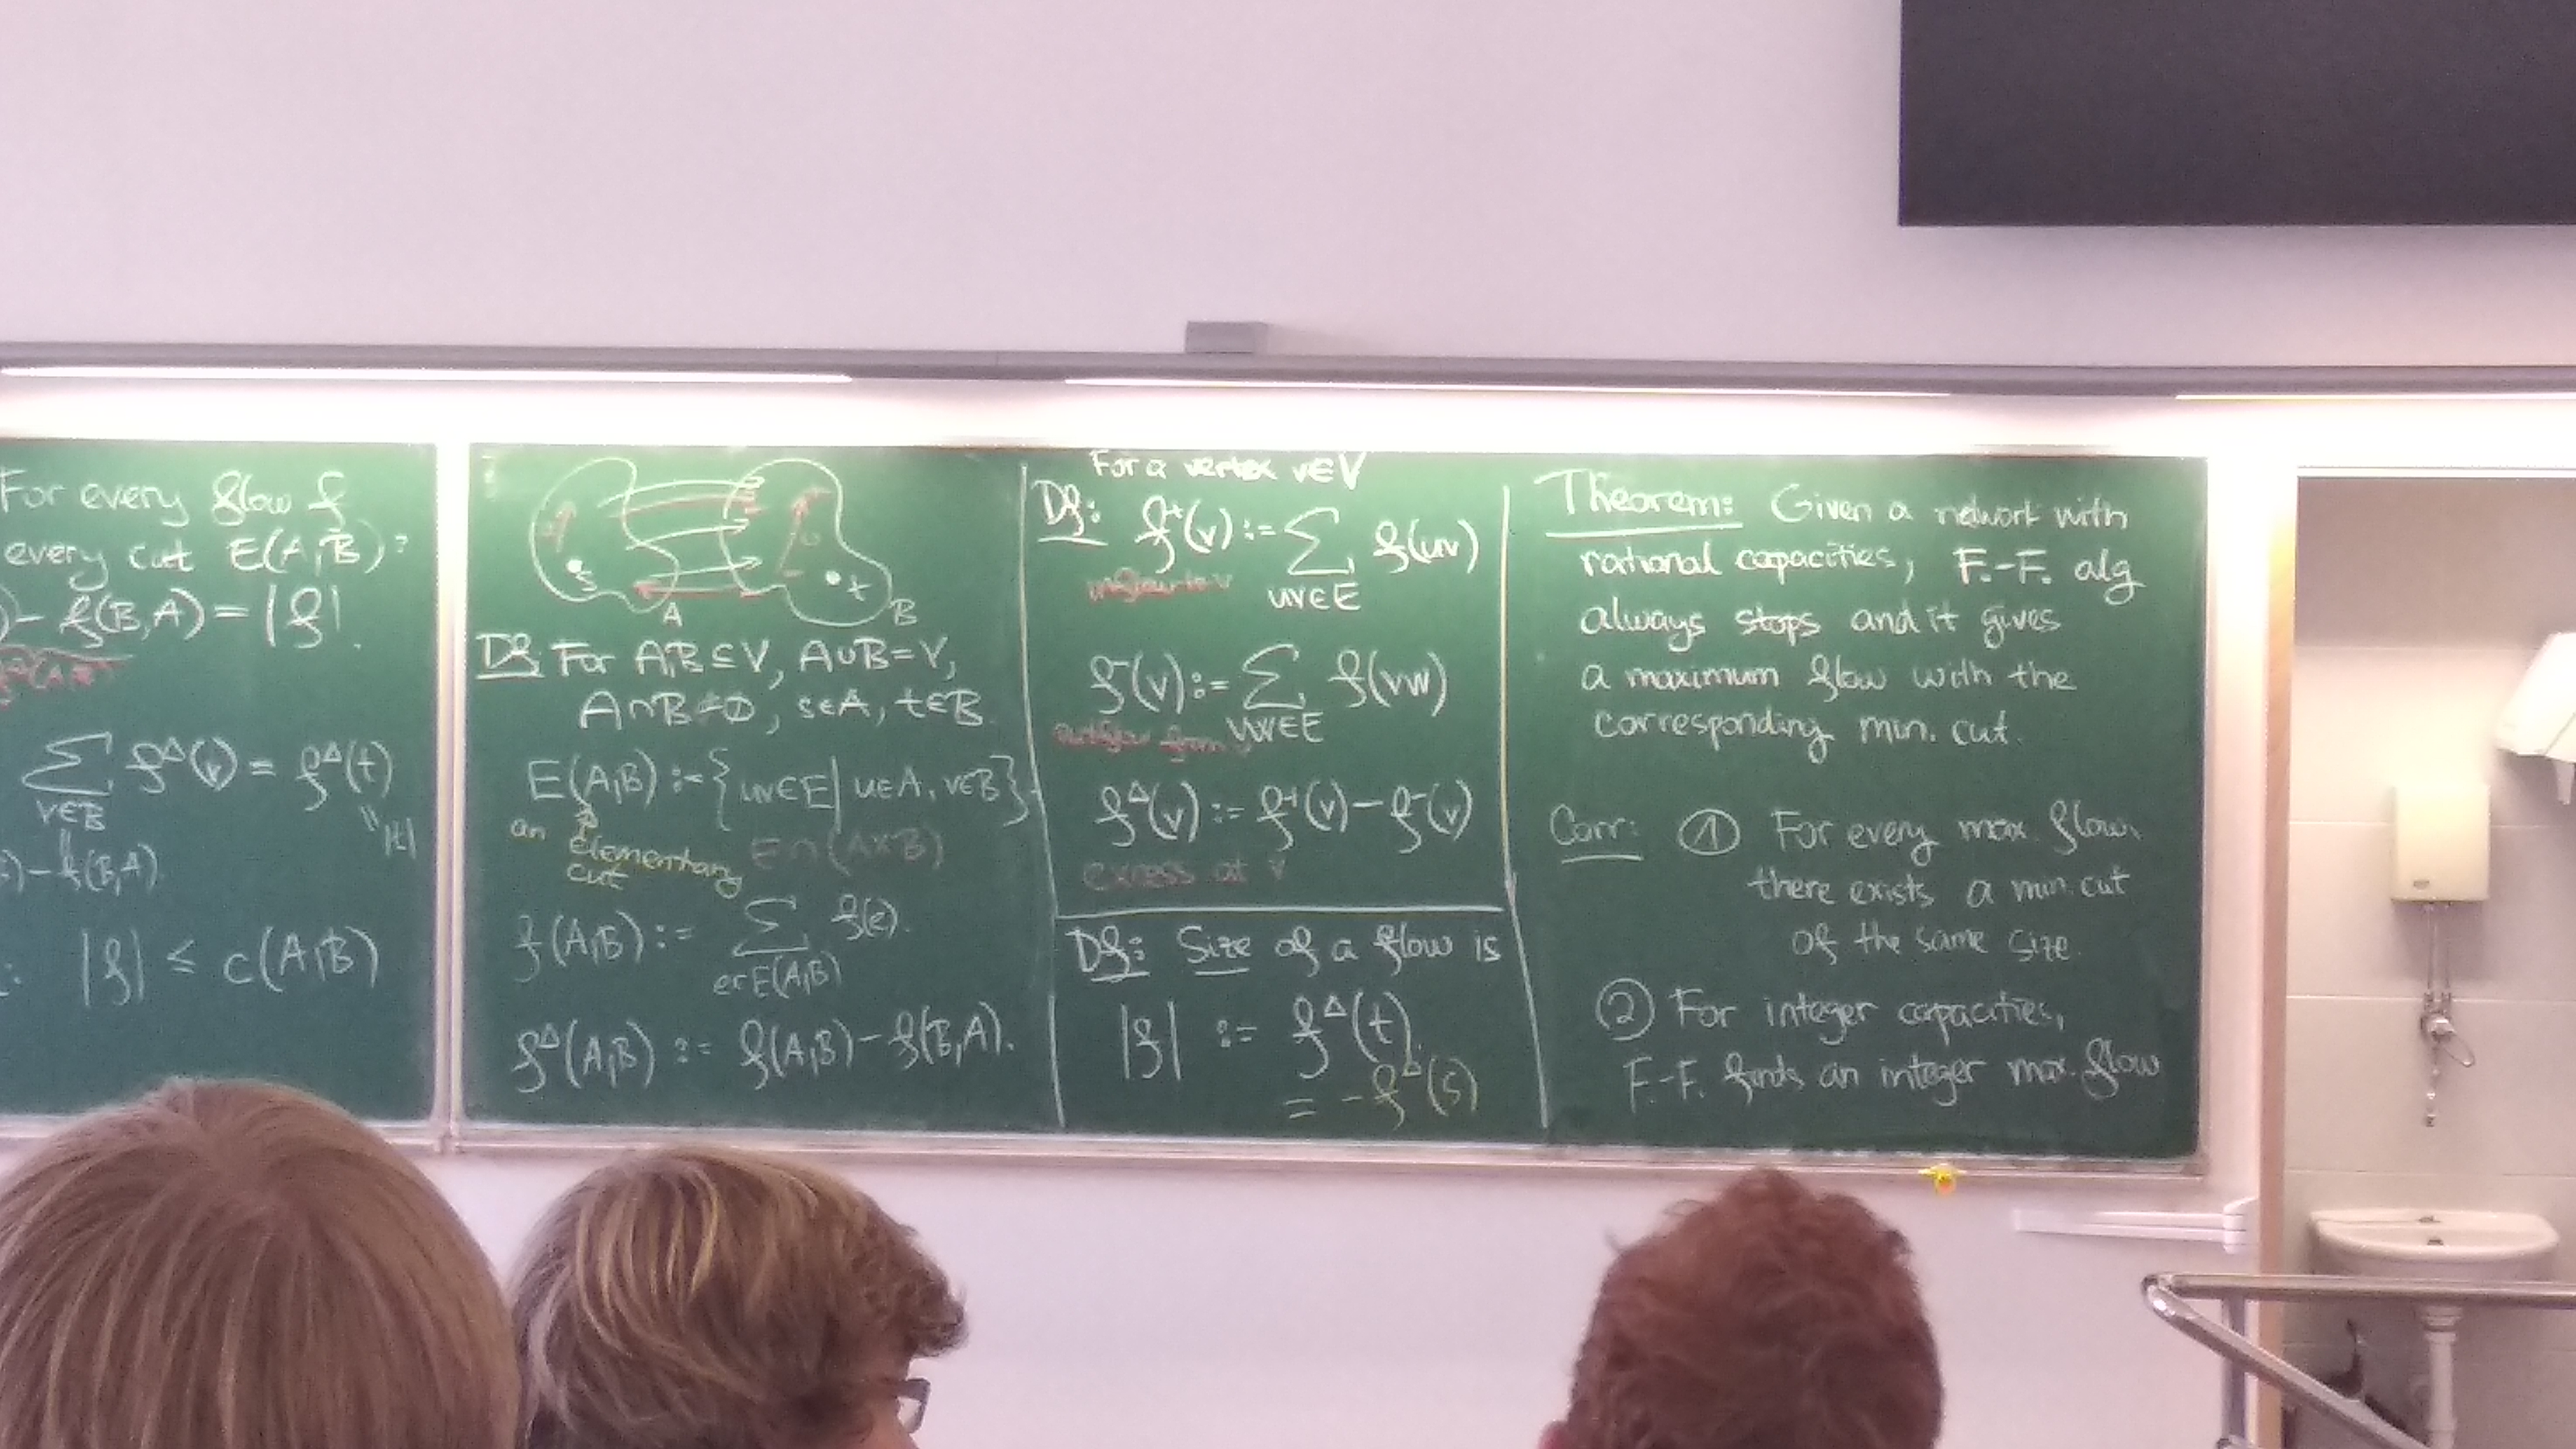 For every flow f
every cut E(A,B):
)- f(B,A) = |f|.
∑ f^Δ(v) = f^Δ(t)
v∈B
|f|
)-f(B,A)
|f| ≤ c(A,B)
s
t
A
B
Df: For A,B⊆V, A∪B=V,
A∩B≠∅, s∈A, t∈B.
E(A,B) := {uv∈E | u∈A, v∈B}.
an elementary
cut
E∩(A×B)
f(A,B) := ∑ f(e).
e∈E(A,B)
f^Δ(A,B) := f(A,B)-f(B,A).
For a vertex v∈V
Df: f⁺(v) := ∑ f(uv)
uv∈E
inflow to v
f⁻(v) := ∑ f(vw)
vw∈E
outflow from v
f^Δ(v) := f⁺(v)-f⁻(v)
excess at v
Df: Size of a flow is
|f| := f^Δ(t).
= -f^Δ(s)
Theorem: Given a network with
rational capacities, F.-F. alg
always stops and it gives
a maximum flow with the
corresponding min. cut.
Corr: ① For every max. flow
there exists a min. cut
of the same size.
② For integer capacities,
F.-F. finds an integer max. flow